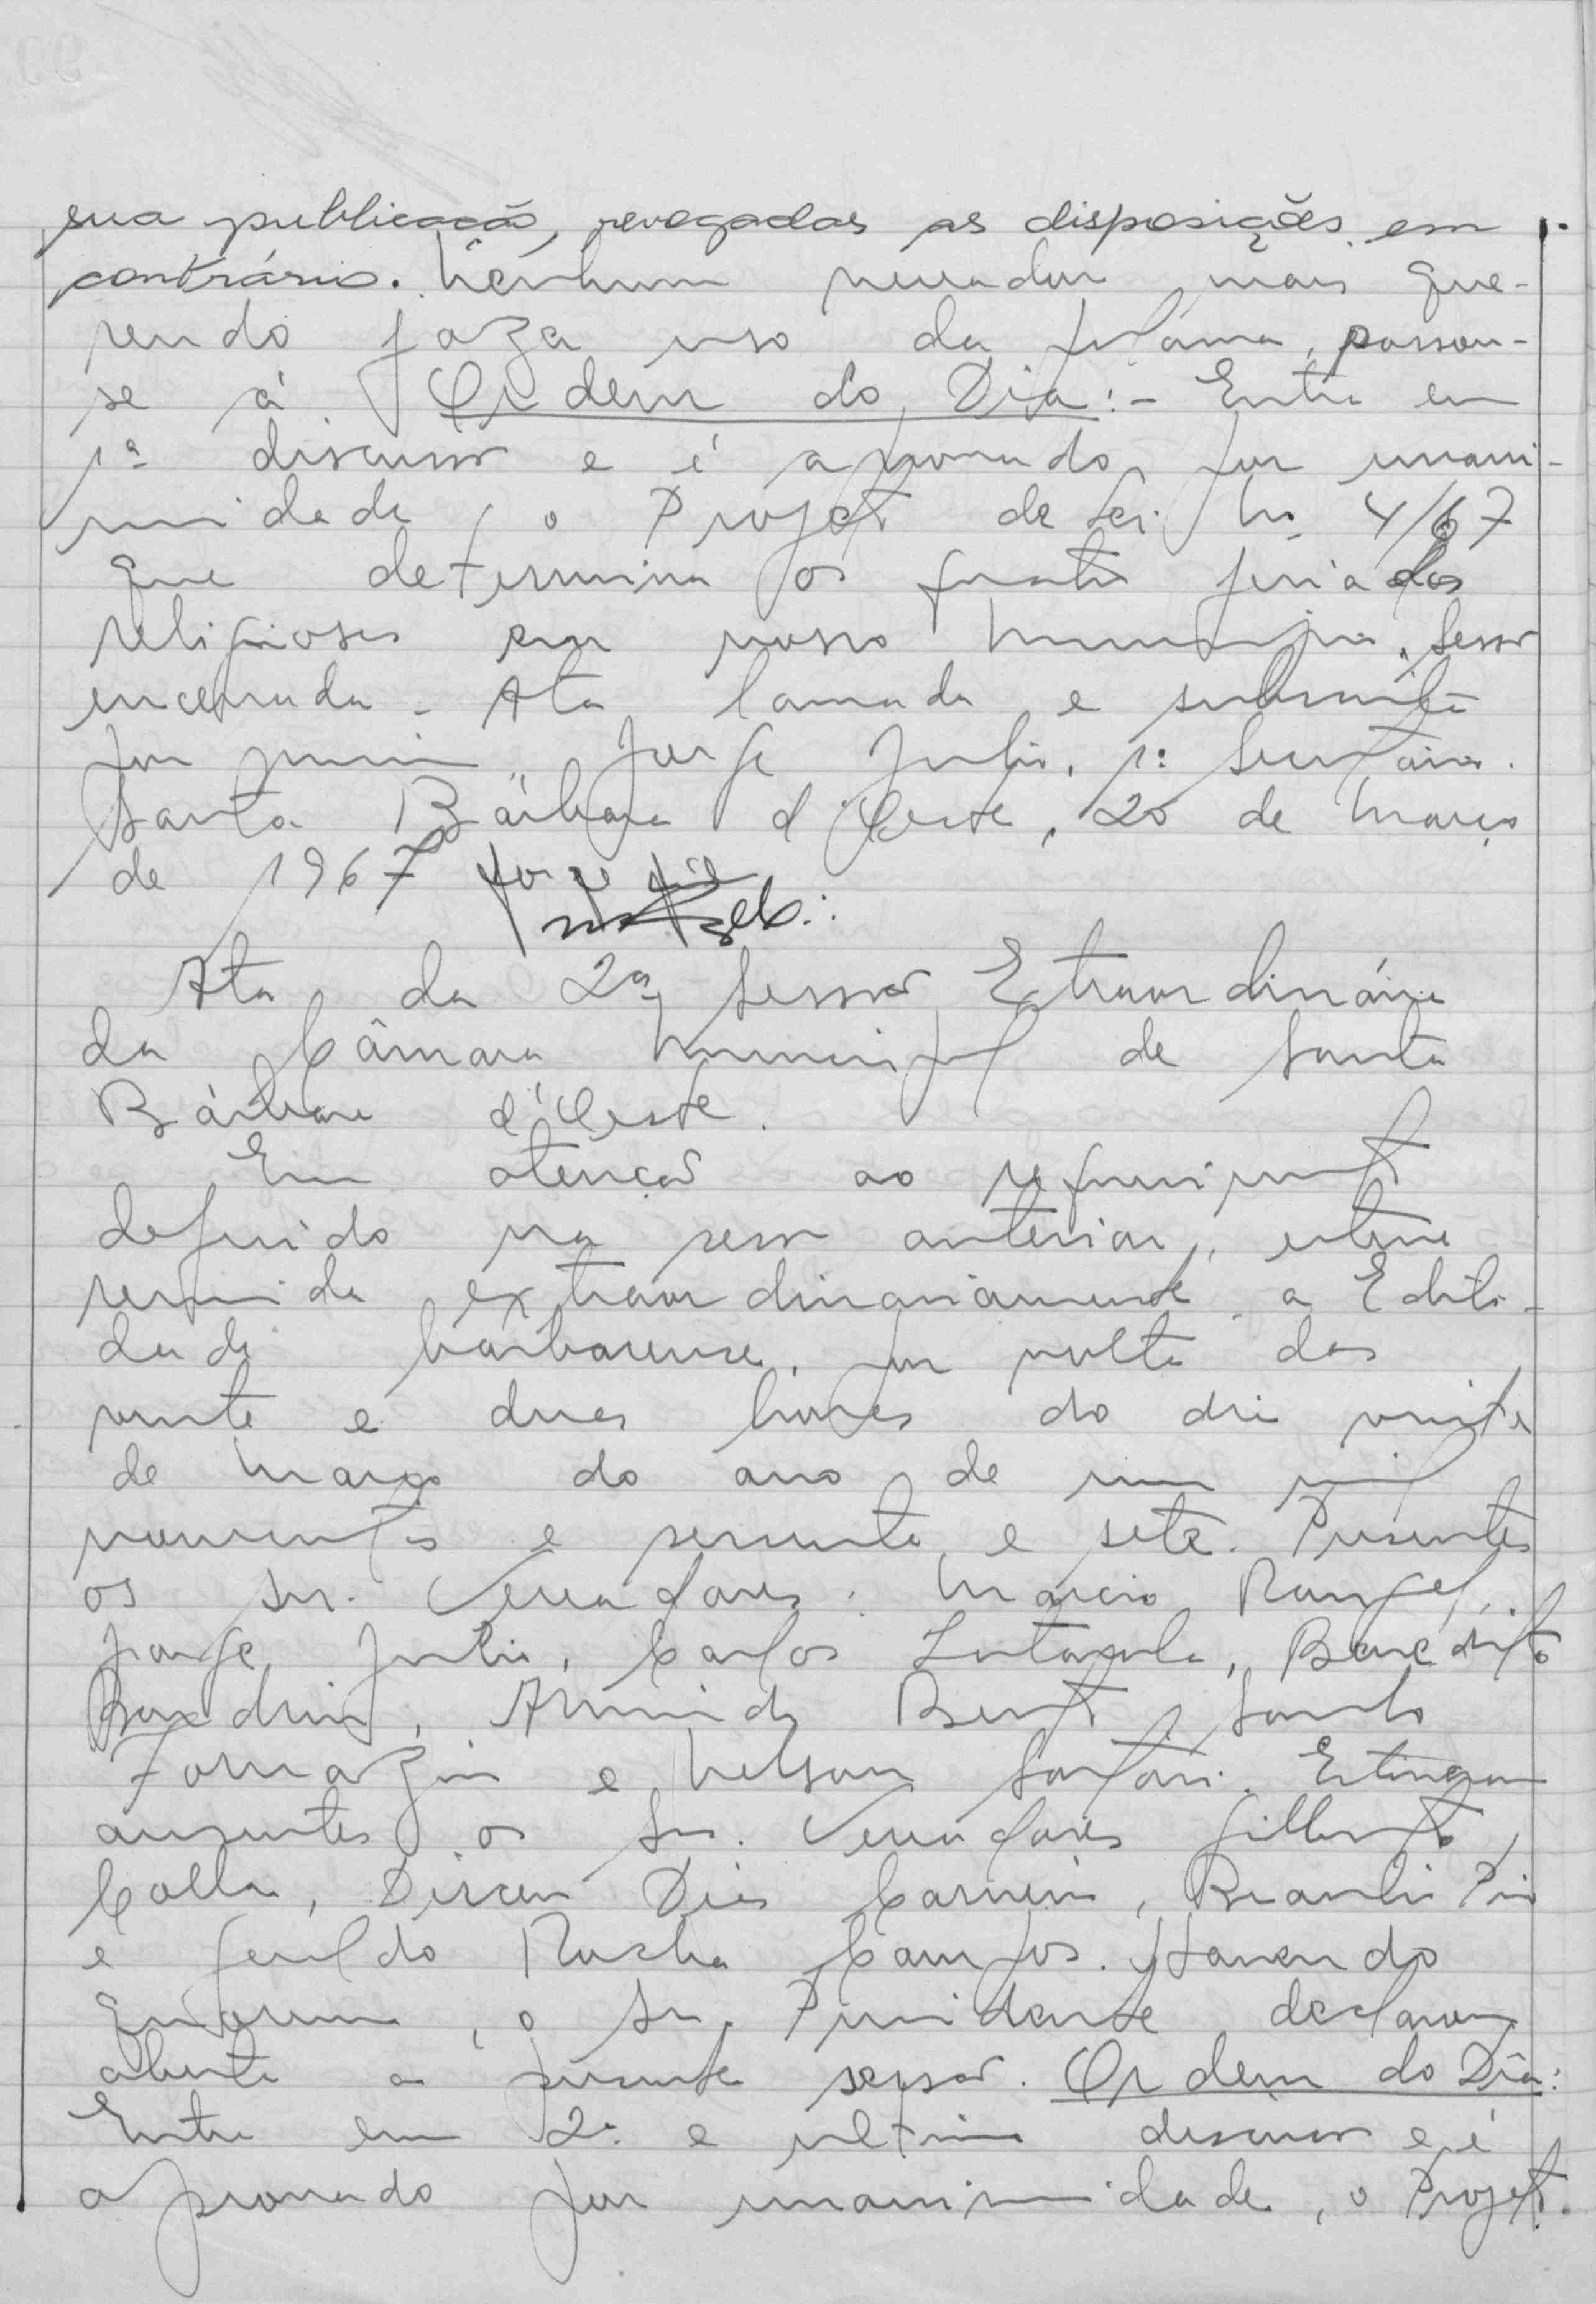 sua publicação, revogadas as disposições em
contrário. Nenhum vereador mais que-
rendo faze uso da palavra, passou-
se á Ordem do Dia:- Entra em
1ª discussão e é aprovado, por unani-
midade, o Projeto de Lei nº 4/67
que determina os quatro feriados
religiosos em nosso Município. Sessão
encerrada. Ata lavrada e subscrita
por mim, Jorge Julio, 1º Secretário.
Santa Bárbara d'Oeste, 20 de Março
de 1967
Ata da 2ª Sessão Extraordinária
da Câmara Municipal de Santa
Bárbara d'Oeste.
Em atenção ao requerimento
deferido na sessão anterior, esteve
reunida extraordinariamente a Edili-
dade barbarense, por volta das
vinte e duas horas do dia vinte
de Março do ano de um mil
novecentos e sessenta e sete. Presentes
os srs. Vereadores: Márcio Rangel,
Jorge Julio, Carlos Benedito
Armindo Bento, Santo
Fornazin e Nelson Sartori. Estiveram
ausentes os Srs. Vereadores Gilberto
Colla, Dirceu Dias Carneiro, Braulio Pio
e Geraldo Rocha Campos. Havendo
Quorum, o Sr. Presidente declarou
aberta a presente sessão. Ordem do Dia:
Entra em 2ª e última discussão e é
aprovado por unanimidade, o Projeto